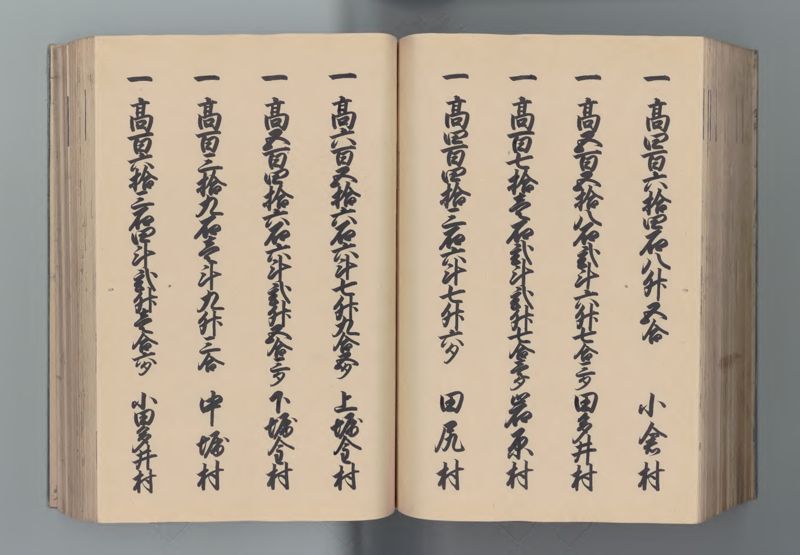 一 高四百六拾四石八升五合 小倉村
一 高五百五拾八石弐斗六升七合三夕 田多井村
一 高百七拾壱石弐斗弐升七合壱夕 岩原村
一 高四百四拾三石六斗七升六夕 田尻村
一 高六百五拾六石六斗七升九合 上堀金村
一 高五百四拾六石六斗弐升五合三夕 下堀金村
一 高百三拾九石壱斗九升三合 中堀村
一 高百六拾三石四斗弐升壱合六夕 小田多井村